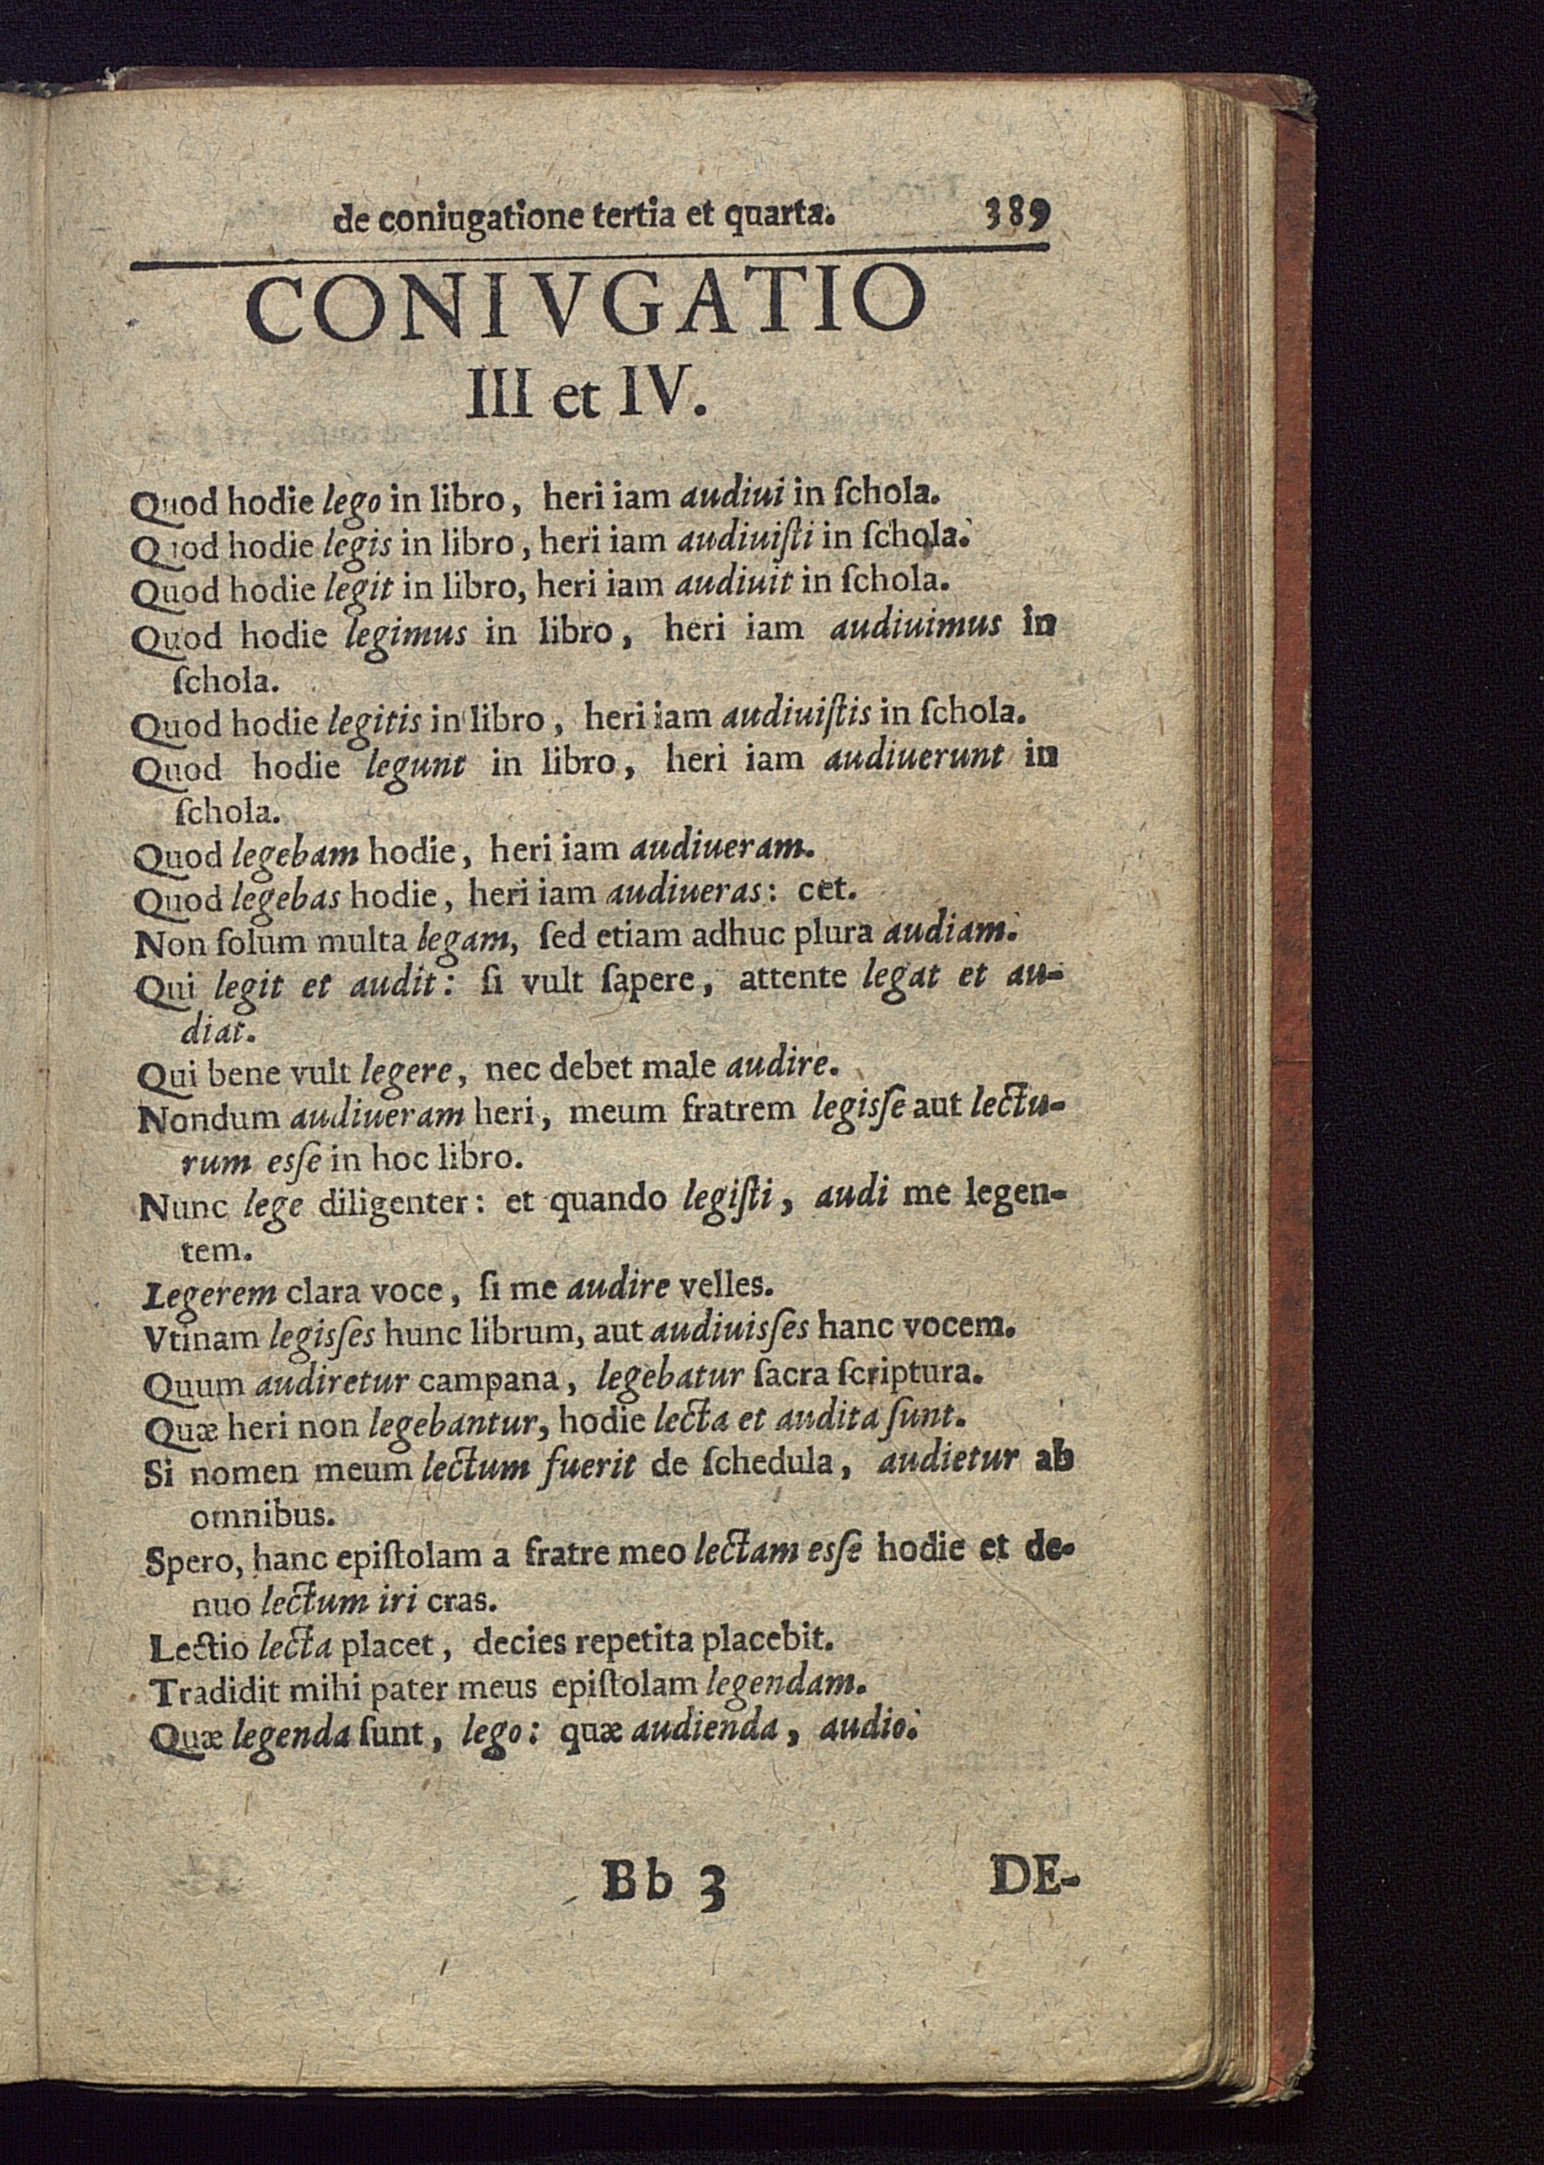 de coniugatione tertia et quarta. 389
CONIVGATIO
III et IV.
Quod hodie lego in libro, heri iam audiui in ſchola.
Quod hodie legis in libro, heri iam audiuiſti in ſchola.
Quod hodie legit in libro, heri iam audiuit in ſchola.
Quod hodie legimus in libro, heri iam audiuimus in
ſchola.
Quod hodie legitis in libro, heri iam audiuiſtis in ſchola.
Quod hodie legunt in libro, heri iam audiuerunt in
ſchola.
Quod legebam hodie, heri iam audiueram.
Quod legebas hodie, heri iam audiueras: cet.
Non ſolum multa legam, ſed etiam adhuc plura audiam.
Qui legit et audit: ſi vult ſapere, attente legat et au-
diat.
Qui bene vult legere, nec debet male audire.
Nondum audiueram heri, meum fratrem legisſe aut lectu-
rum esſe in hoc libro.
Nunc lege diligenter: et quando legiſti, audi me legen-
tem.
Legerem clara voce, ſi me audire velles.
Vtinam legisſes hunc librum, aut audiuisſes hanc vocem.
Quum audiretur campana, legebatur ſacra ſcriptura.
Quæ heri non legebantur, hodie lecta et audita ſunt.
Si nomen meum lectum fuerit de ſchedula, audietur ab
omnibus.
Spero, hanc epiſtolam a fratre meo lectam esſe hodie et de-
nuo lectum iri cras.
Lectio lecta placet, decies repetita placebit.
Tradidit mihi pater meus epiſtolam legendam.
Quæ legenda ſunt, lego: quæ audienda, audio.
Bb 3 DE-